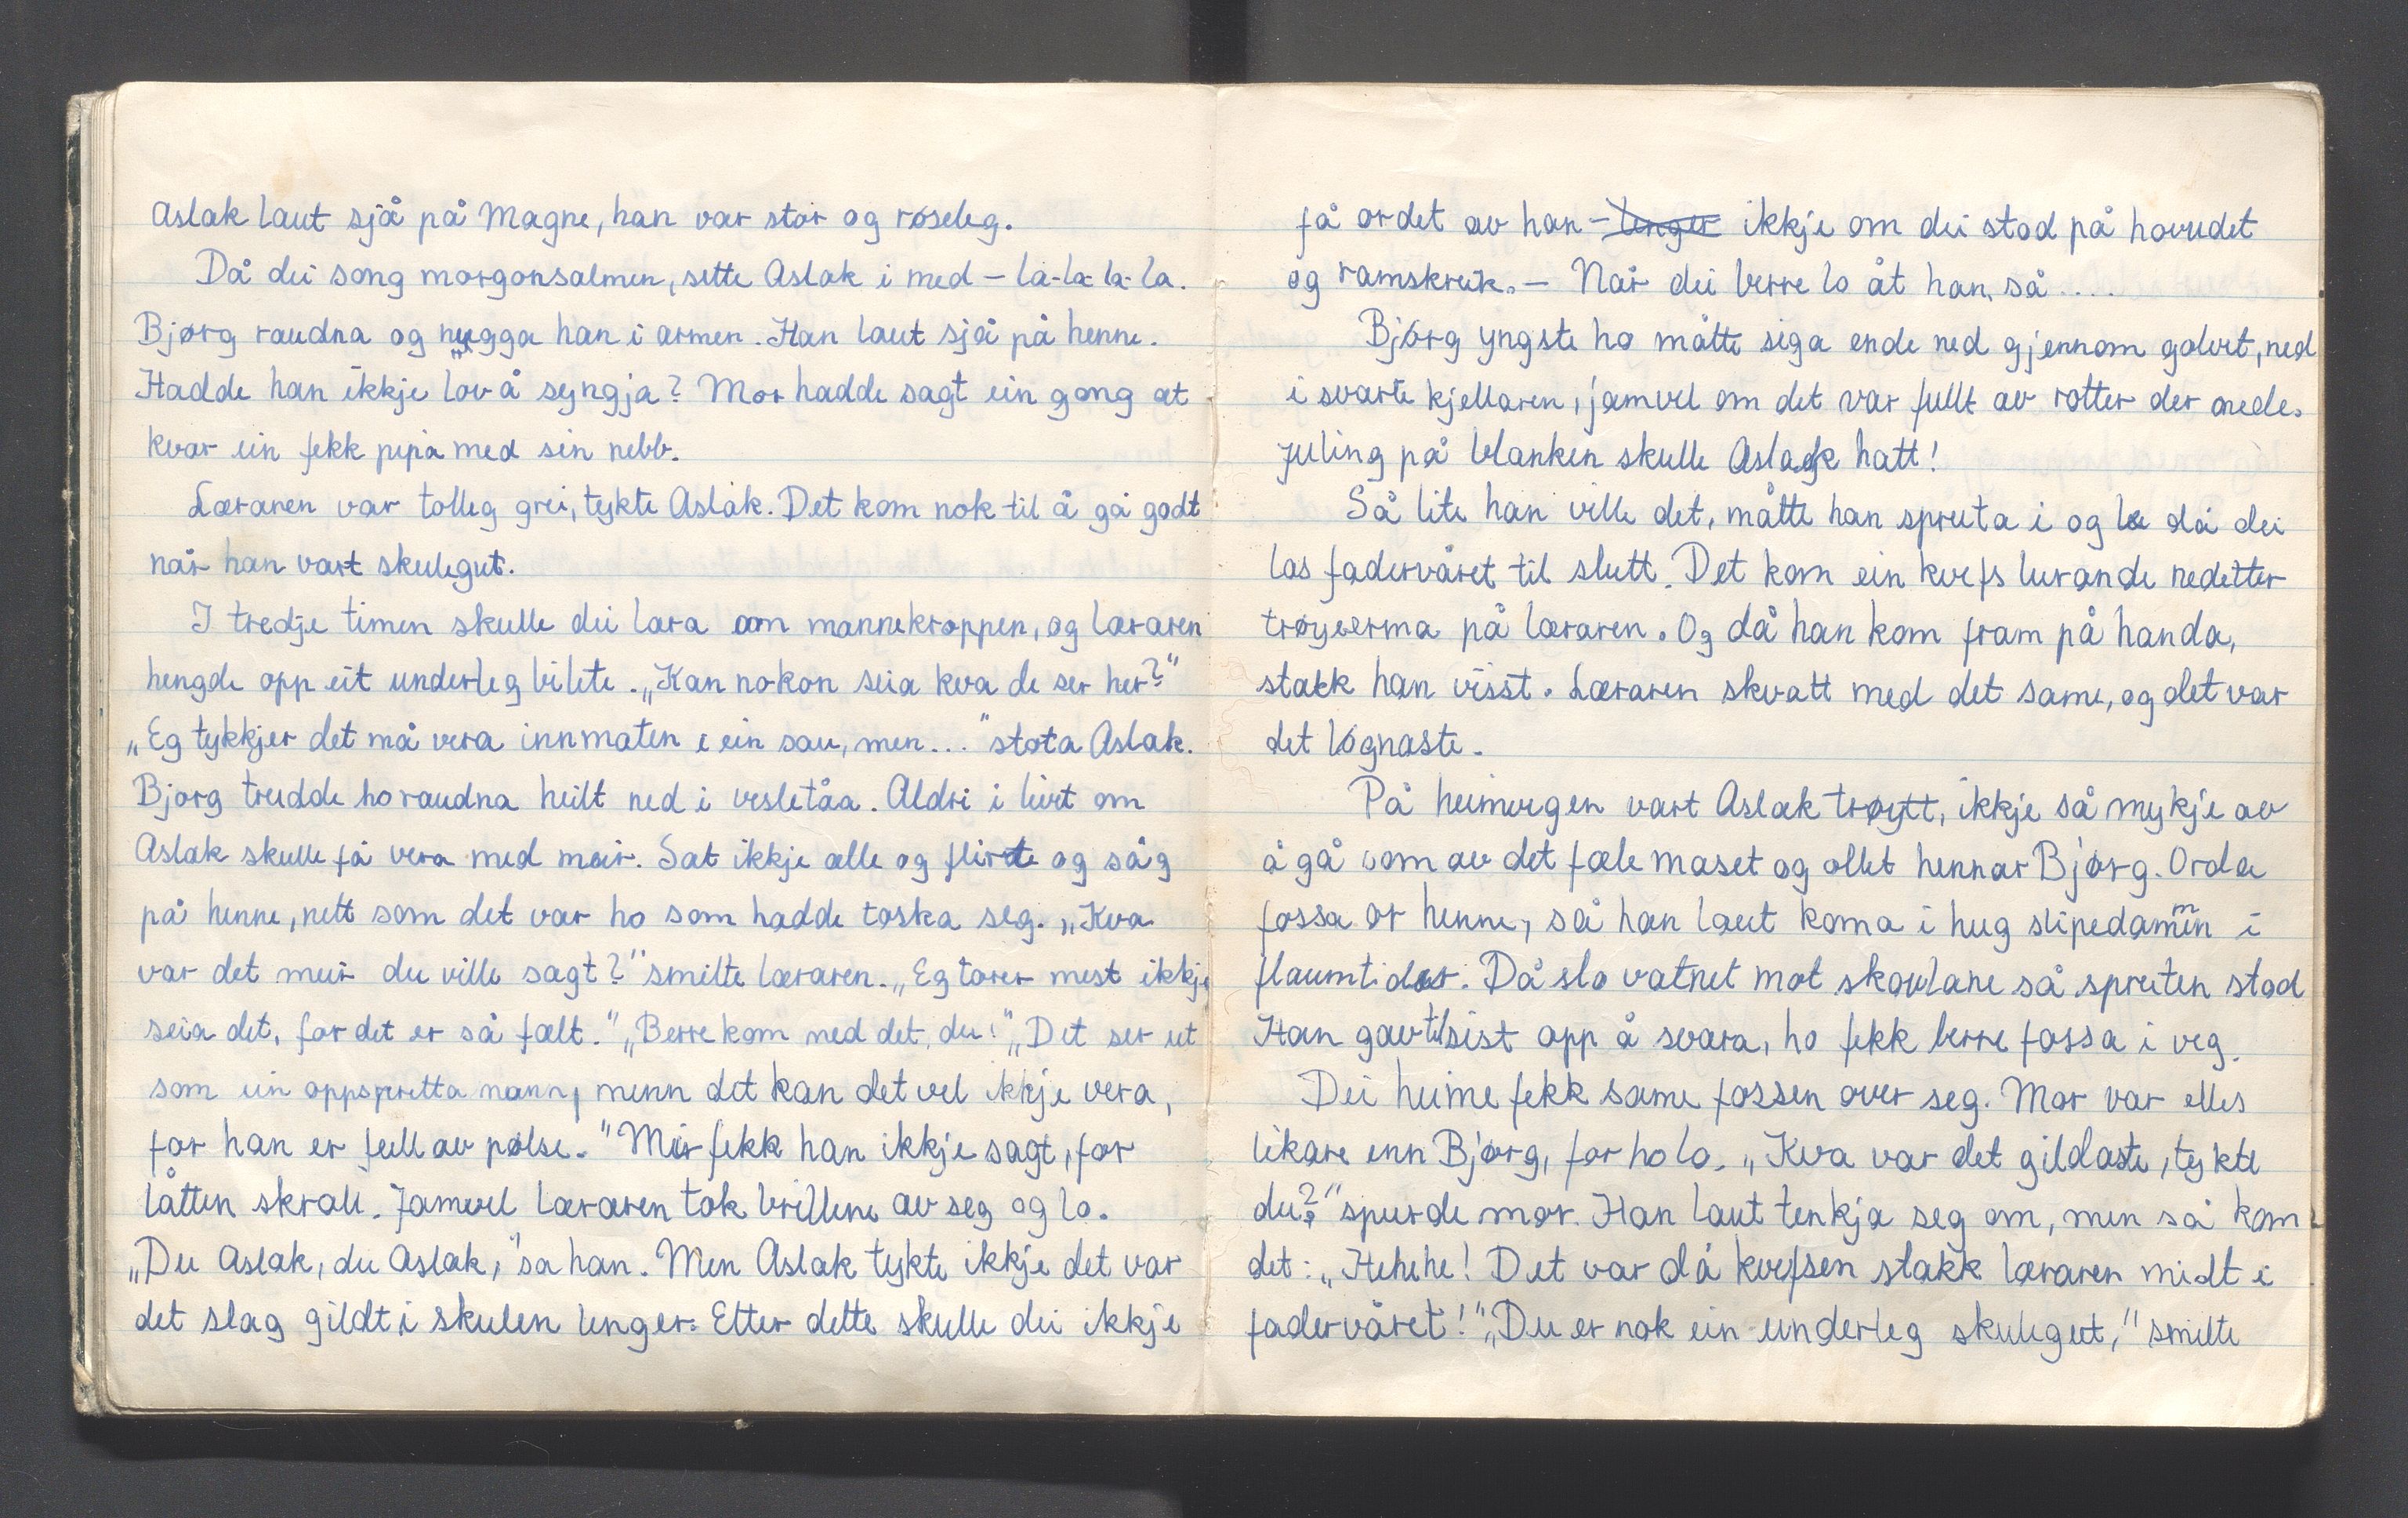 Aslak laut sjå på Magne, han var stor og røseleg.
Då dei song morgonsalmen, sette Aslak i med – la-la-la-la.
Bjørg raudna og nugga han i armen. Han laut sjå på henne.
Hadde han ikkje lov å syngja? Mor hadde sagt ein gong at
kvar ein fekk pipa med sin nebb.
Læraren var tolleg grei, tykte Aslak. Det kom nok til å gå godt
når han vart skulegut.
I tredje timen skulle dei læra om mannekroppen, og læraren
hengde opp eit underleg bilete. „Kan nokon seia kva de ser her?"
„Eg tykkjer det må vera innmaten i ein sau, men..." stota Aslak.
Bjørg trudde ho raudna heilt ned i vesletåa. Aldri i livet om
Aslak skulle få vera med meir. Sat ikkje alle og flirte og såg
på henne, nett som det var ho som hadde toska seg. „Kva
var det meir du ville sagt?" smilte læraren. „Eg torer mest ikkje
seia det, for det er så fælt." „Berre kom med det, du!" „Det ser ut
som ein oppspretta mann, menn det kan det vel ikkje vera,
for han er full av pølse." Meir fekk han ikkje sagt, for
låtten skrall. Jamvel læraren tok brillene av seg og lo.
„Du Aslak, du Aslak," sa han. Men Aslak tykte ikkje det var
det slag gildt i skulen lenger. Etter dette skulle dei ikkje
få ordet av han – lenger ikkje om dei stod på hovudet
og ramskreik. – Når dei berre lo åt han, så ....
Bjørg yngste ho måtte siga ende ned gjennom golvet, ned
i svarte kjellaren, jamvel om det var fullt av rotter der nede.
Juling på blanken skulle Aslak hatt!
Så lite han ville det, måtte han spruta i og le då dei
las fadervåret til slutt. Det kom ein kvefs lurande nedetter
trøyeerma på læraren. Og då han kom fram på handa,
stakk han visst. Læraren skvatt med det same, og det var
det løgnaste.
På heimvegen vart Aslak trøytt, ikkje så mykje av
å gå som av det fæle maset og ollet hennar Bjørg. Orda
fossa or henne, så han laut koma i hug slipedammen i
flaumtider. Då slo vatnet mot skovlane så spruten stod
Han gav til sist opp å svara, ho fekk berre fossa i veg.
Dei heime fekk same fossen over seg. Mor var elles
likare enn Bjørg, for ho lo. „Kva var det gildaste, tykte
du?" spurde mor. Han laut tenkja seg om, men så kom
det: „Hehehe! Det var då kvefsen stakk læraren midt i
fadervåret!" „Du er nok ein underleg skulegut," smilte